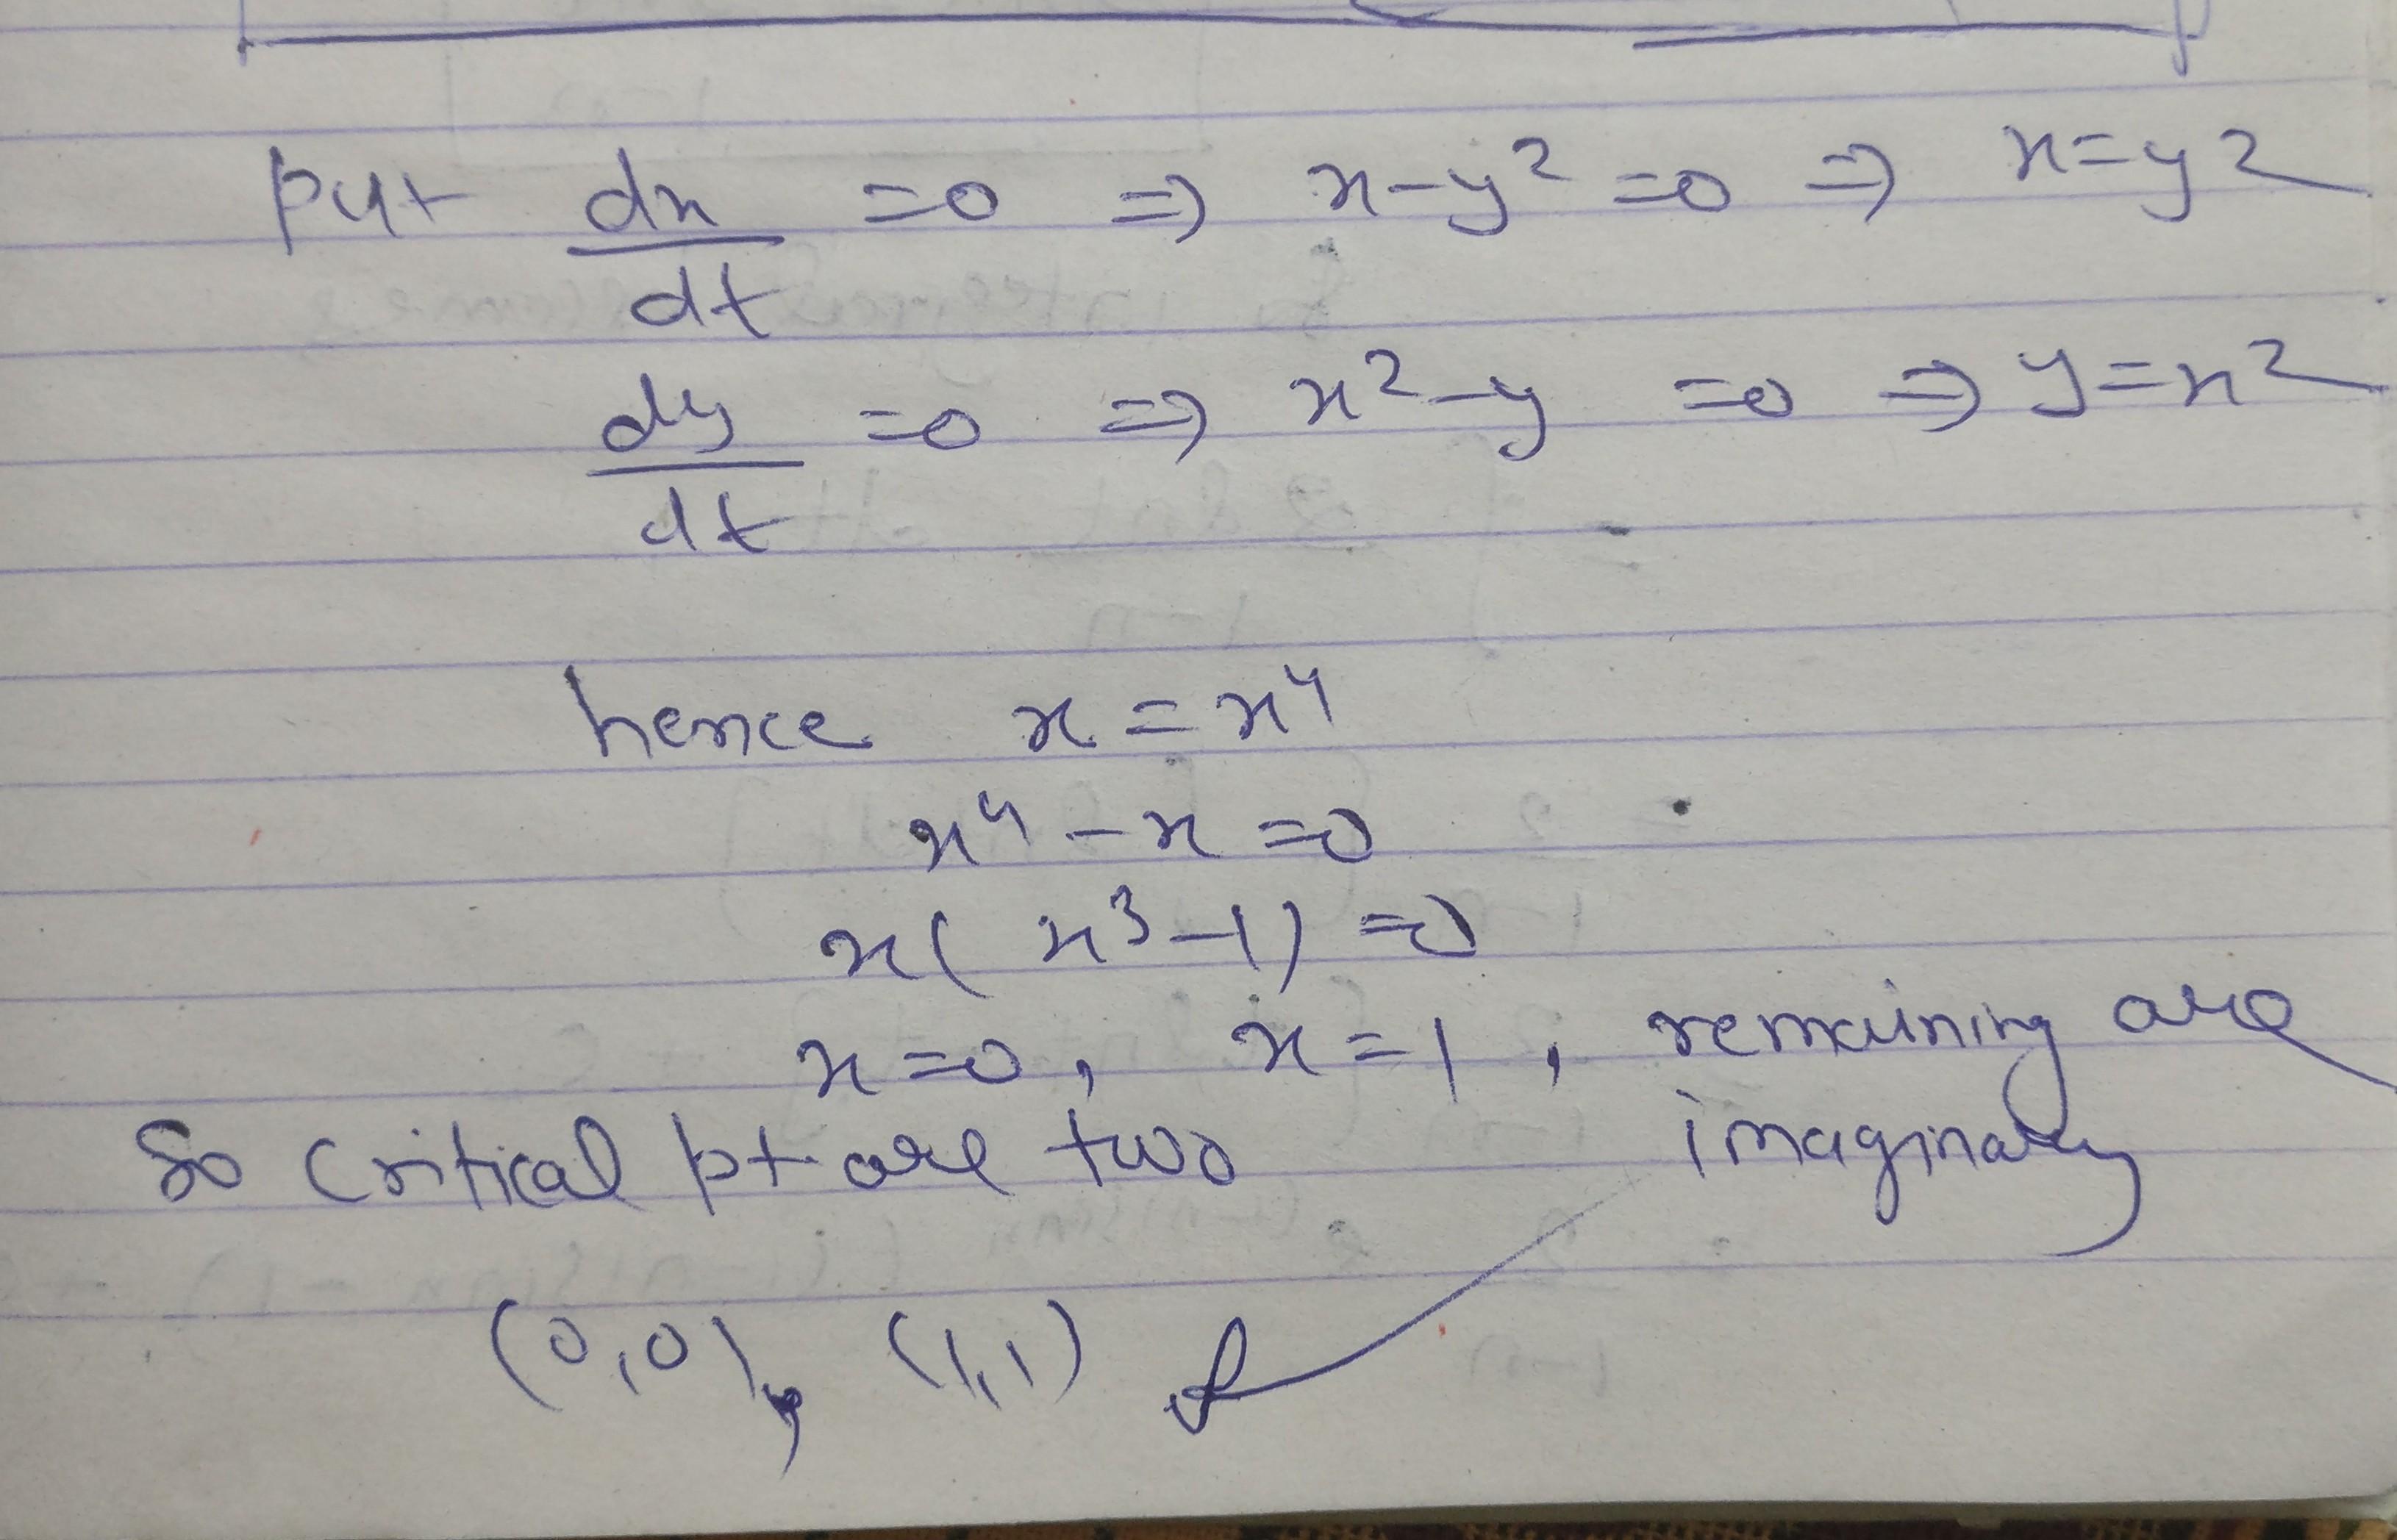 put dx/dt =0 => x-y² =0 => x=y²
dy/dt =0 => x²-y =0 => y=x²
hence x = x⁴
x⁴ - x =0
x( x³-1) =0
x=0, x=1, remaining are
imaginary
So critical pt are two
(0,0), (1,1)